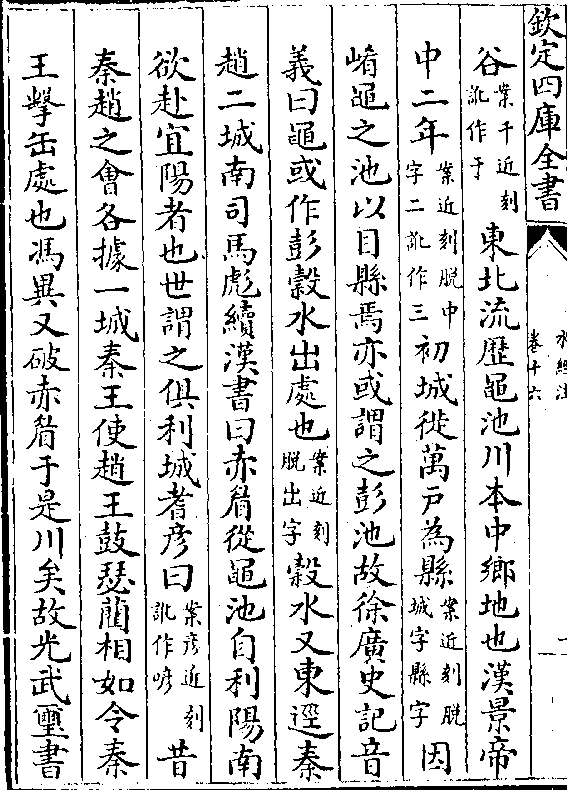 欽定四庫全書
水經注
卷十六
谷案千近刻訛作于東北流歴黽池川本中鄉地也漢景帝
中二年案近刻脫中字二訛作三初城徙萬戶為縣案近刻脫城字縣字因
崤黽之池以目縣焉亦或謂之彭池故徐廣史記音
義曰黽或作彭穀水出處也案近刻脫出字穀水又東逕秦
趙二城南司馬彪續漢書曰赤眉從黽池自利陽南
欲赴宜陽者也世謂之俱利城耆彦曰案彦近刻訛作喭昔
秦趙之會各據一城秦王使趙王鼓瑟藺相如令秦
王擊缶處也馮異又破赤眉于是川矣故光武璽書